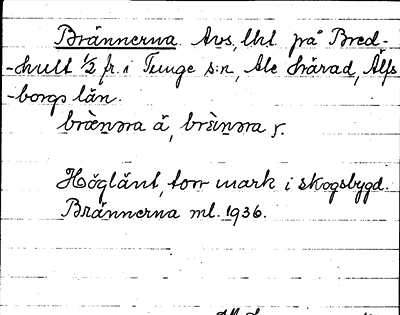 Brännerna. Avs, lht. på Bred-
-hult ½ fr. i Tunge s:n, Ale härad, Älfs
-borgs län.
brænəra ä, brɛ̀nəra y.
Höglänt, torr mark i skogsbygd.
Brännerna ml. 1936.